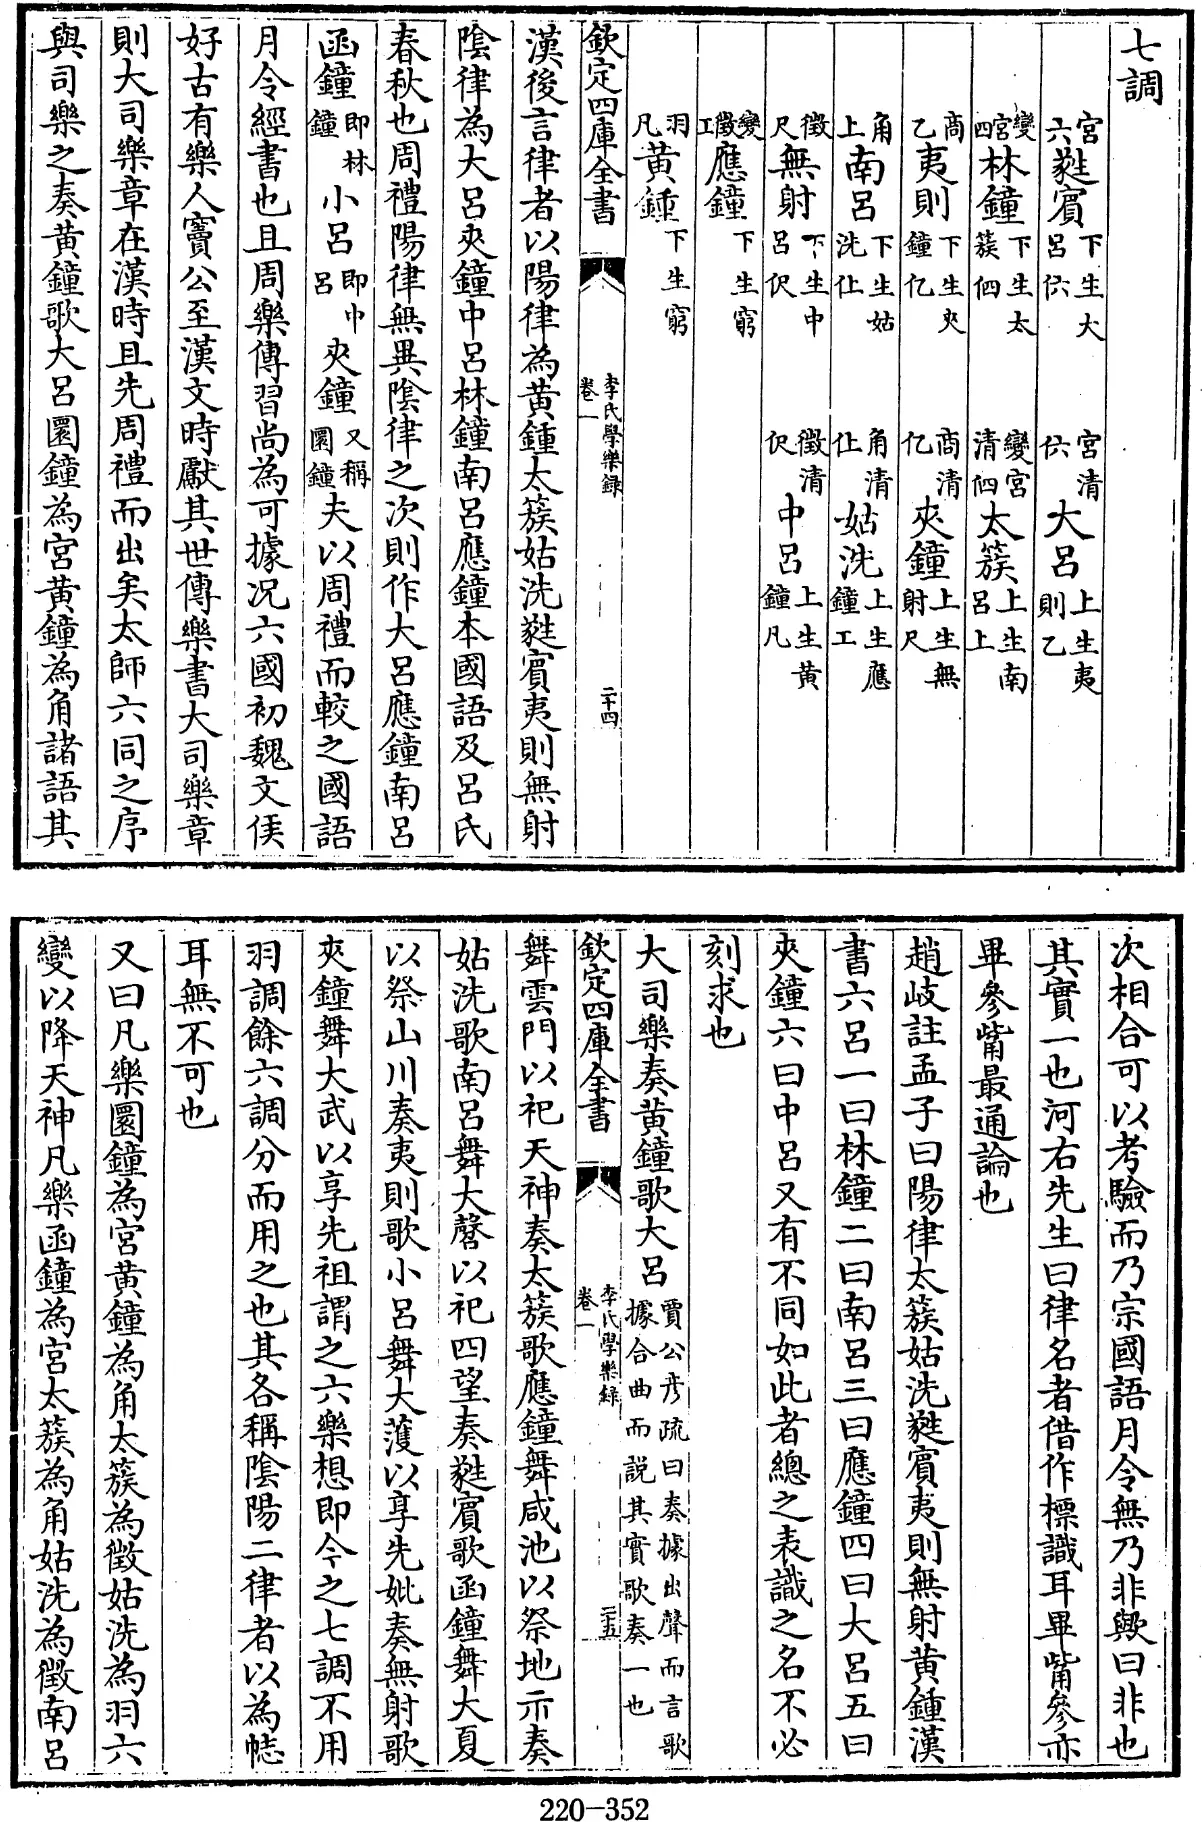 七調
宮六蕤賓下生大呂伬 宮清伬大呂上生夷則乙
變宮四林鐘下生太簇伵 變宮清伵太簇上生南呂上
商乙夷則下生夾鐘亿 商清亿夾鐘上生無射尺
角上南呂下生姑洗仩 角清仩姑洗上生應鐘工
徵尺無射下生中呂伬 徵清伬中呂上生黃鐘凡
變徵工應鐘下生窮
羽凡黃鍾下生窮
欽定四庫全書 李氏學樂録 卷一 二十四
漢後言律者以陽律為黃鍾太簇姑洗蕤賓夷則無射
陰律為大呂夾鐘中呂林鐘南呂應鐘本國語及呂氏
春秋也周禮陽律無異陰律之次則作大呂應鐘南呂
函鐘即林鐘小呂即中呂夾鐘又稱圜鐘夫以周禮而較之國語
月令經書也且周樂傳習尚為可據况六國初魏文侯
好古有樂人竇公至漢文時獻其世傳樂書大司樂章
則大司樂章在漢時且先周禮而出矣太師六同之序
與司樂之奏黃鐘歌大呂圜鐘為宮黃鐘為角諸語其
次相合可以考驗而乃宗國語月令無乃非歟曰非也
其實一也河右先生曰律名者借作標識耳畢觜參亦
畢參觜最通論也
趙岐註孟子曰陽律太簇姑洗蕤賓夷則無射黃鍾漢
書六呂一曰林鐘二曰南呂三曰應鐘四曰大呂五曰
夾鐘六曰中呂又有不同如此者總之表識之名不必
刻求也
大司樂奏黃鐘歌大呂賈公彦疏曰奏據出聲而言歌據合曲而説其實歌奏一也
欽定四庫全書 李氏學樂録 卷一 二十五
舞雲門以祀天神奏太簇歌應鐘舞咸池以祭地示奏
姑洗歌南呂舞大磬以祀四望奏蕤賓歌函鐘舞大夏
以祭山川奏夷則歌小呂舞大濩以享先妣奏無射歌
夾鐘舞大武以享先祖謂之六樂想即今之七調不用
羽調餘六調分而用之也其各稱陰陽二律者以為恀
耳無不可也
又曰凡樂圜鐘為宮黃鐘為角太簇為徵姑洗為羽六
變以降天神凡樂函鐘為宮太簇為角姑洗為徵南呂
220-352